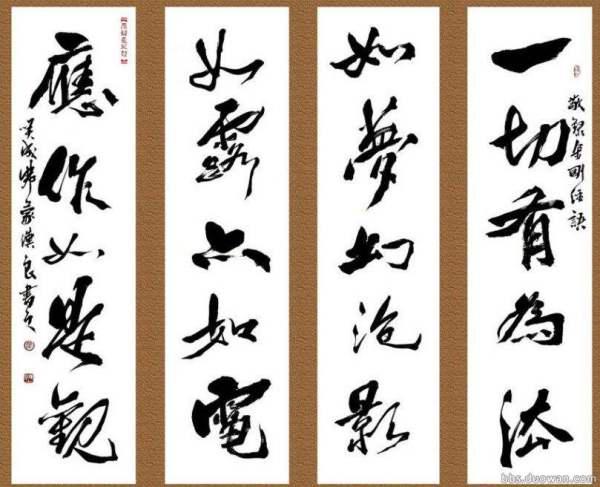 敬錄金剛經語
一切有為法
如夢幻泡影
如露亦如電
應作如是觀
bbs.duowan.com